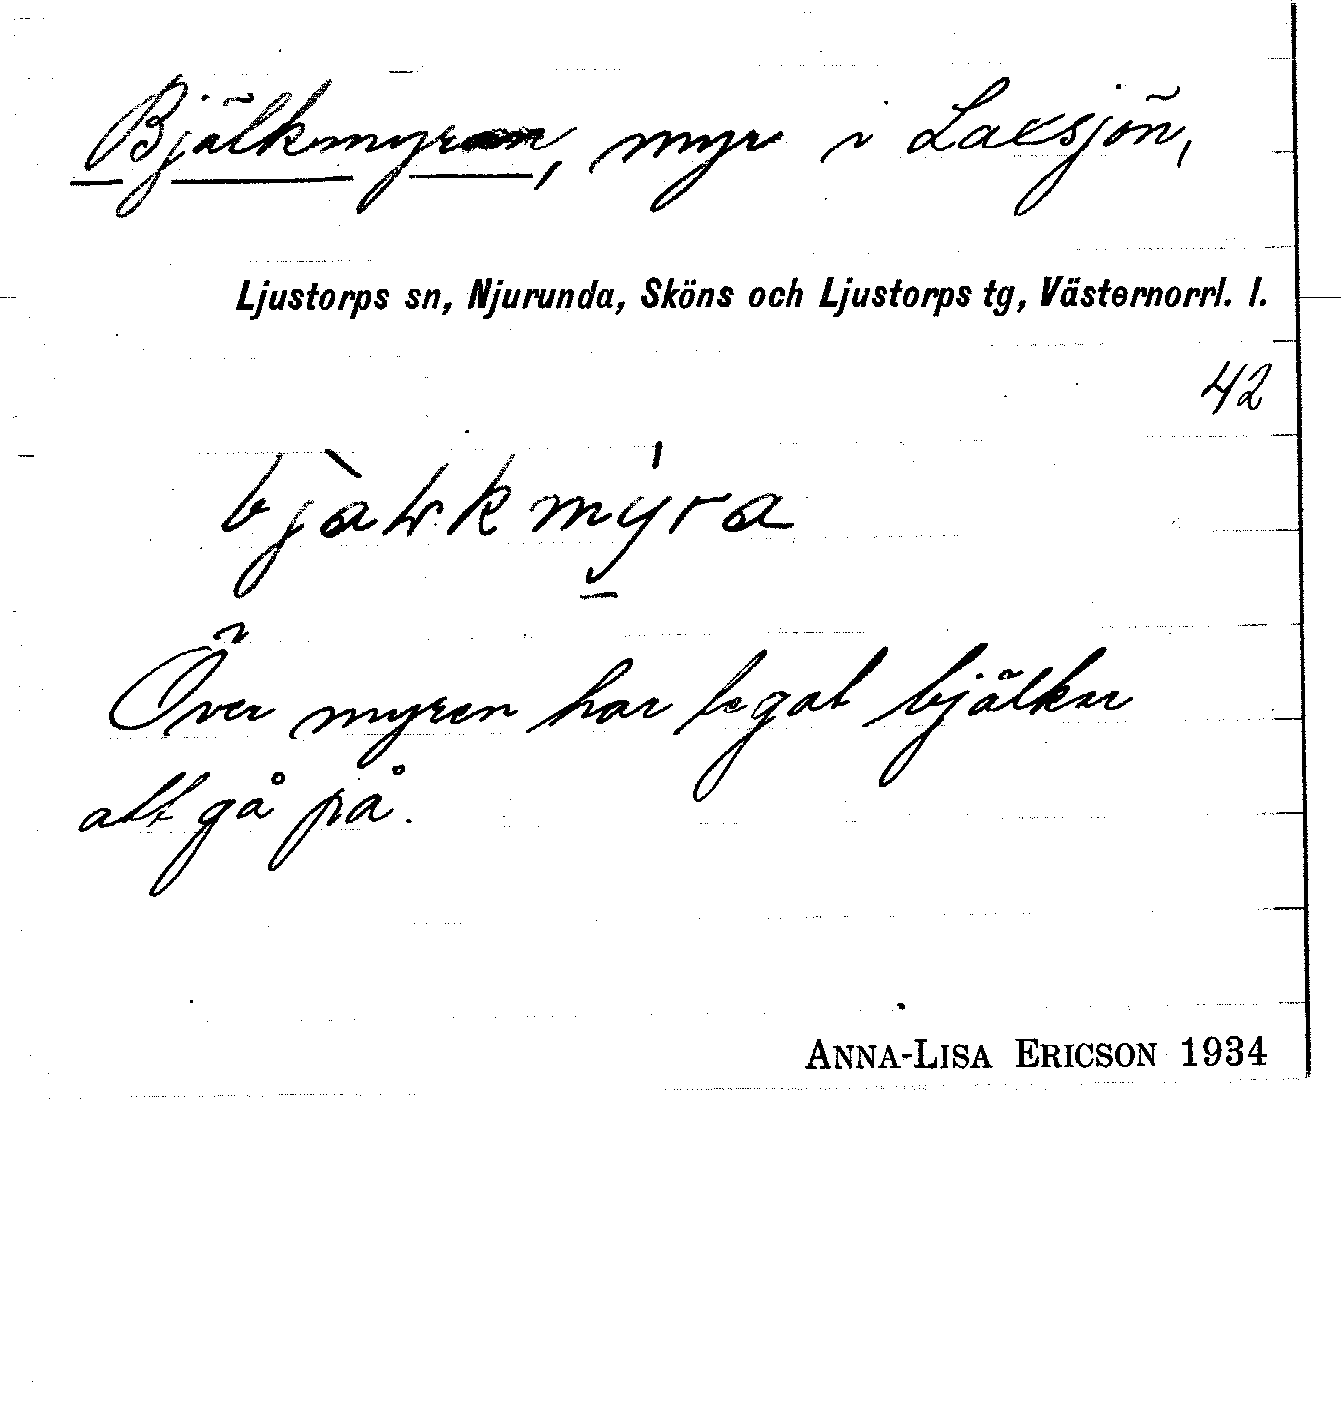 Bjälkmyran, myr i Laxsjön,
Ljustorps sn, Njurunda, Sköns och Ljustorps tg, Västernorrl. l.
42
Över myren har legat bjälkar
att gå på.
ANNA-LISA ERICSON 1934